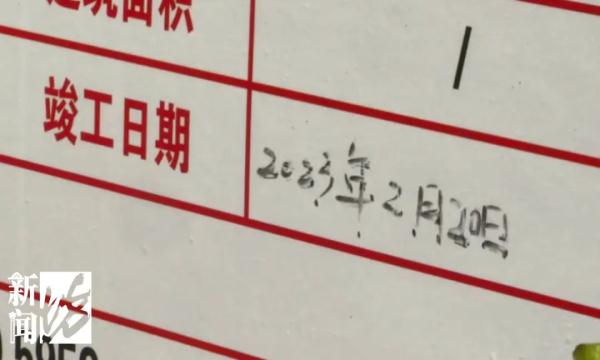 建筑面积 /
竣工日期 2023年2月20日
新闻坊